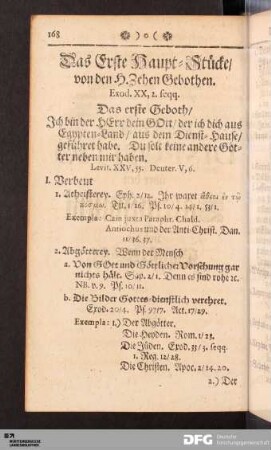 168 ❀ ) o ( ❀
Das Erste Haupt-Stücke/
von den H. Zehen Gebothen.
Exod. XX, 2. seqq.
Das erste Geboth/
Ich bin der HErr dein GOtt/ der ich dich aus
Egypten-Land/ aus dem Dienst-Hause/
geführet habe. Du solt keine andere Göt-
ter neben mir haben.
Levit. XXV, 55. Deuter. V, 6.
I. Verbeut
1. Atheisterey. Eph. 2/12. Ihr waret ἄθεοι ἐν τῷ
κόσμῳ. Tit. 1/16. Ps. 10/4. 14/1. 53/1.
Exempla: Cain juxta Paraphr. Chald.
Antiochus und der Anti-Christ. Dan.
11/36. 37.
2. Abgötterey. Wenn der Mensch
a. Von GOtt und Göttlicher Vorsehung gar
nichtes hält. Sap. 2/1. Denn es sind rohe ꝛc.
NB. v. 9. Ps. 10/11.
b. Die Bilder Gottes-dienstlich verehret.
Exod. 20/4. Ps. 97/7. Act. 17/29.
Exempla: 1.) Der Abgötter.
Die Heyden. Rom. 1/23.
Die Jüden. Exod. 32/5. seqq.
1. Reg. 12/28.
Die Christen. Apoc. 2/14. 20.
2.) Der
DFG Deutsche
Forschungsgemeinschaft